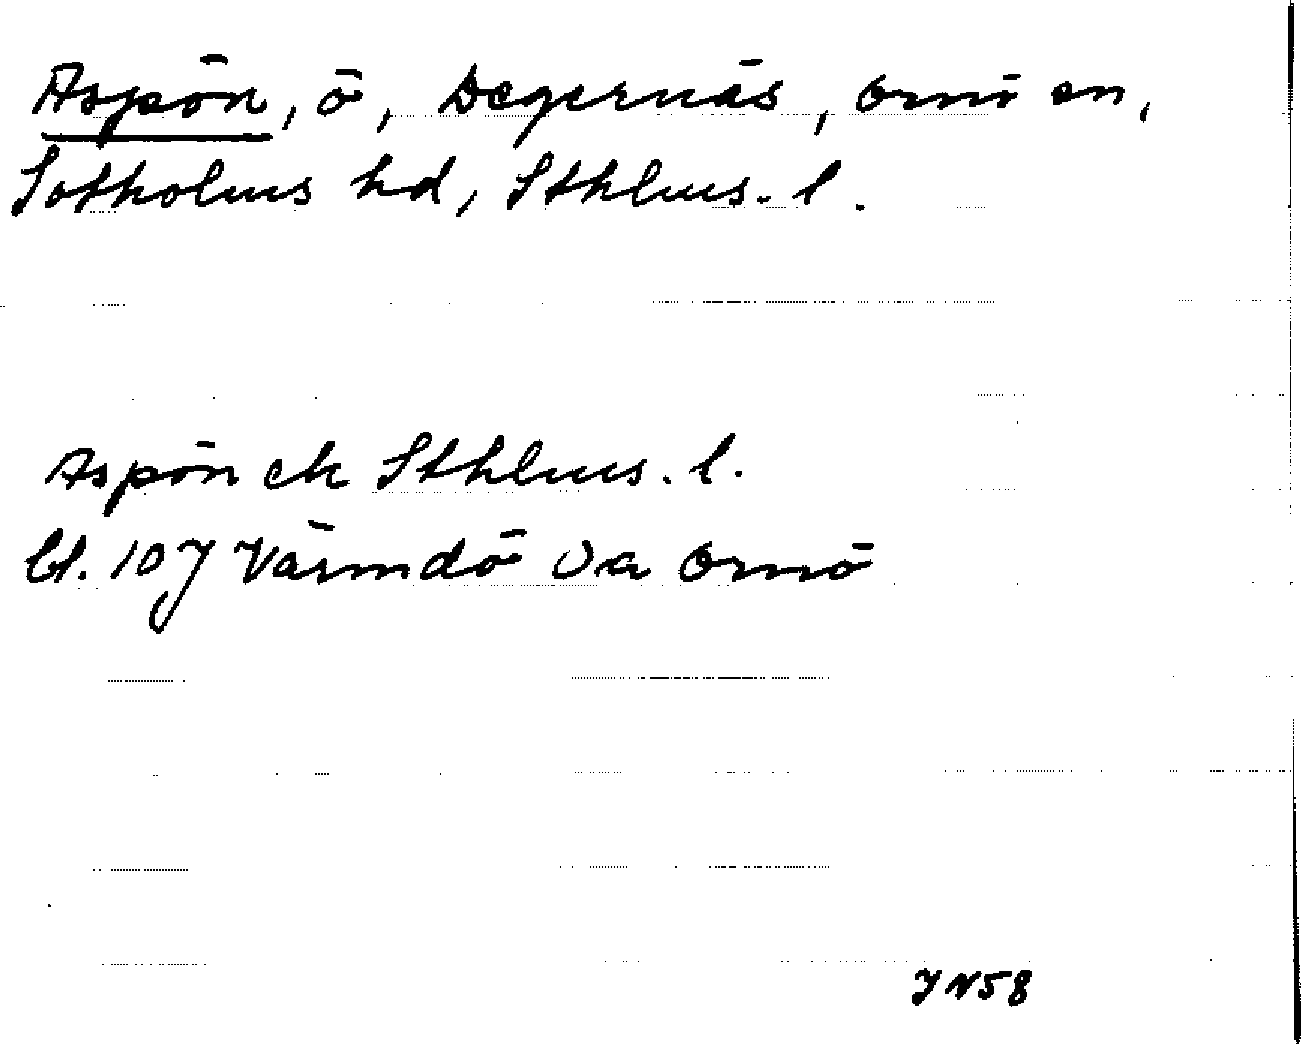 Aspön, ö, Degernäs, Ornö sn,
Sotholms hd, Sthlms. l.
Aspön ek Sthlms. l.
bl. 10 J Värmdö Va Ornö
JN58